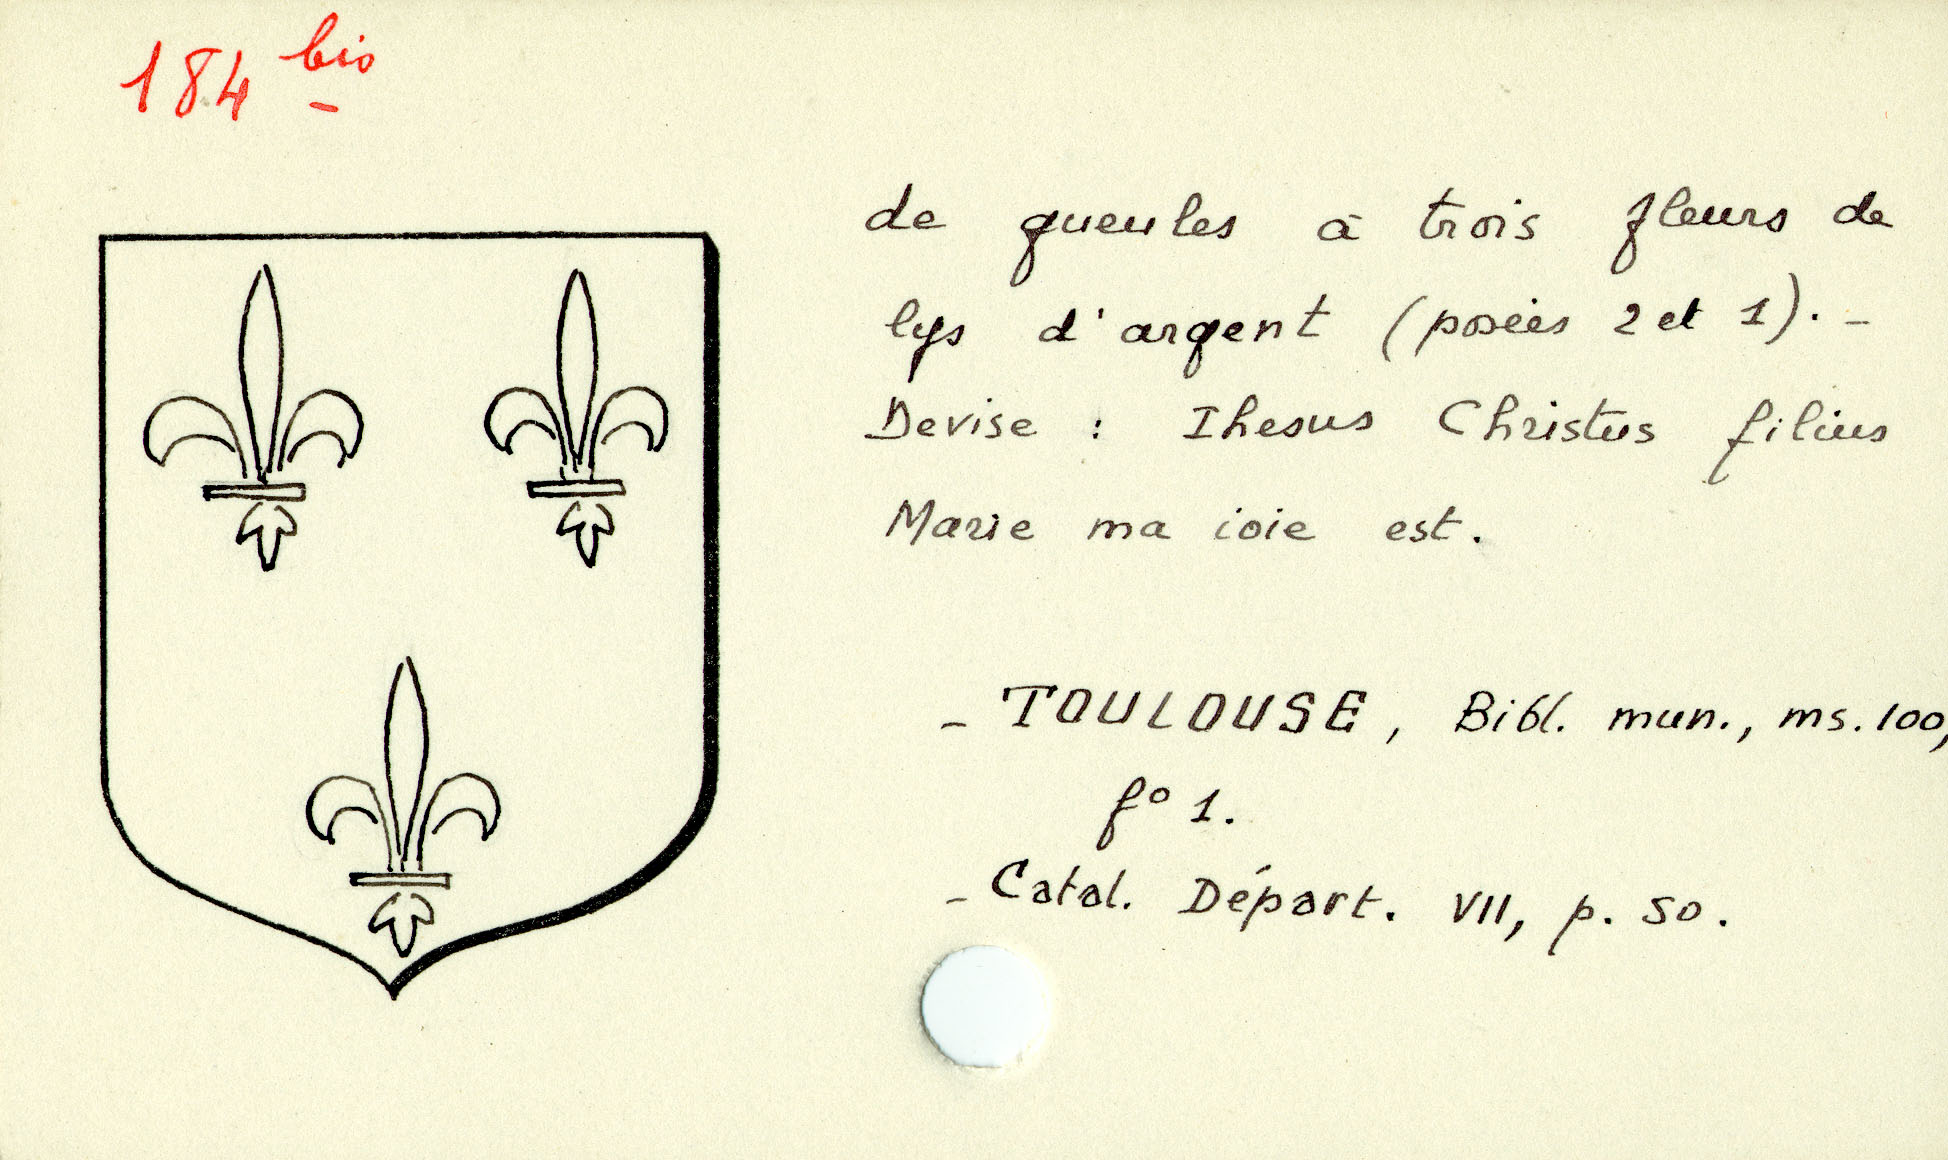 184 bis
de gueules à trois fleurs de
lys d'argent (posées 2 et 1). -
Devise : Ihesus Christus filius
Marie ma ioie est.
- TOULOUSE, Bibl. mun., ms. 100,
fº 1.
- Catal. Départ. VII, p. 50.